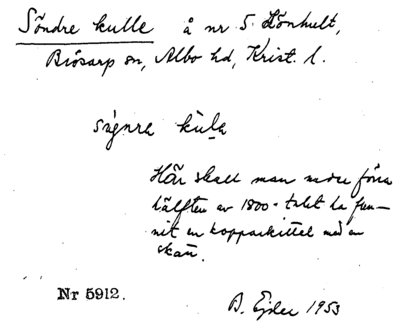 Söndre kulle å nr 5 Lönhult,
Brösarp sn, Albo hd, Krist. l.
sȳnrа kula
Här skall man under förra
hälften av 1800-talet ha fun-
nit en kopparkittel med en
skatt.
Nr 5912.
B. Ejder 1953